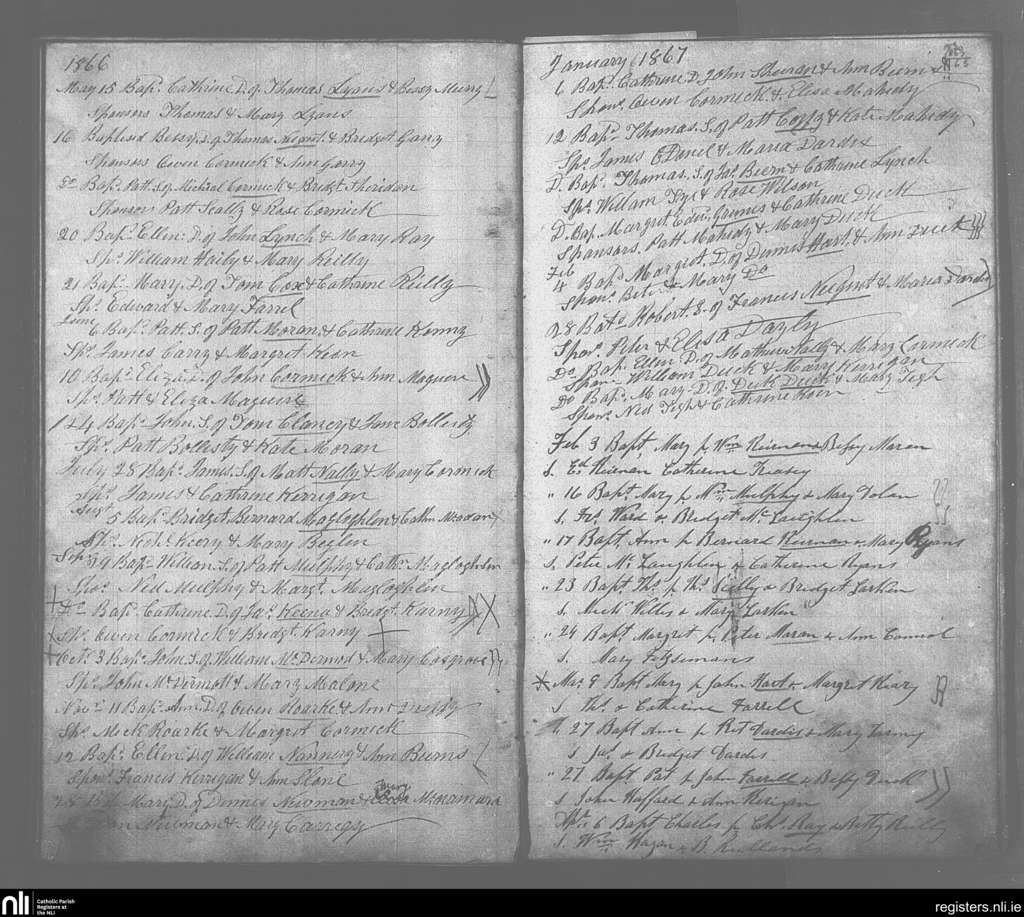 1866
May 15 Bap. Cathrine D. of Thomas Lyans & Bessy Murry
Sponsors Thomas & Mary Lyans
16 Baptised Bessy D. of Thomas & Bridget Garry
Sponsors Owen Cormick & Ann Garry
Do Bap. Patt S. of Micheal Cormick & Bridgt Sheridan
Sponsors Patt Scally & Rose Cormick
20 Bap. Ellen D. of John Lynch & Mary Ray
Sps. William Haily & Mary Reilly
21 Bap. Mary D. of Tom Cox & Cathrine Reilly
Sps. Edward & Mary Farrel
June
6 Bap. Patt S. of Patt Moran & Cathrine Kenny
Sps. James Carry & Margret Kean
10 Bap. Eliza D. of John Cormick & Ann Maguere
Sps. Patt & Eliza Maguire
24 Bap. John S. of Tom Clancy & Jane Bollesty
Sps. Patt Bollesty & Kate Moran
July 28 Bap. James S. of Matt Nally & Mary Cormick
Sps. James & Cathrine Kerrigan
Augt
5 Bap. Bridget Bernard Magloghlen & Cathn
Sps. & Mary Beglen
Sepr 29 Bap. William S. of Patt Mulphy & Cath. Magloghlen
Spos. Ned Mulphy & Margt. Magloghlen
Do Bap. Cathrine D. of Jas. Keena & Bridgt. Karny
Sps. Owen Cormick & Bridgt. Karny
Oct. 3 Bap. John S. of William McDermod & Mary Cosgrove
Sps. John McDermott & Mary Malone
Novr 11 Bap. Ann D. of Owen Roarke & Ann
Sps. Mick Roarke & Margret Cormick
12 Bap. Ellen D. of William Nannery & Ann Burns
Spons. Francis Kerrigan & Ann Slone
28 Mary D. of Dinnes Niwman & Mary Mcnamara
Niwman & Mary Carregy
January 1867
6 Bap. Cathrine D. John Sheeran & Ann Beern
Spons. Owen Cormick & Elisa Mahedy
12 Bap. Thomas S. of Patt Coffy & Kate Mahidy
Sps. James O Daniel & Maria Dardis
D. Bap. Thomas S. of Jas. Beern & Cathrine Lynch
Sps. William Fye & Rose Wilson
D. Bap. Margrit Edw. Grimes & Cathrine Duck
Sponsors. Patt Mahidy & Mary Duck
Feb
4 Bap. Margrot D. of Dinnis Hart & Ann Duck
Spons. Peter & Mary Do
28 Bat. Robert S. of Francis Nugent & Maria Dardis
Spos. Piter & Elisa Dazly
Do Bap. Ellen D. of Mathew Nally & Mary Cormick
Spons William Duck & Mary Kerrigan
Do Bap. Mary D. of Duck Duck & Mary Tigh
Spons. Ned Tigh & Cathrine
Feb 3 Bapt Mary p Wm Keirnan & Bessy Maran
S. Ed. Keirnan Catherine Treacy
" 16 Bapt. Mary p Wm. Mulphy & Mary Dolan
S. Jas. Ward & Bridget McLaughlen
" 17 Bapt. Ann p Bernard Keirnan & Mary Ryans
S. Peter McLaughlen & Catherine Ryans
" 23 Bapt. Ths. p Ths. Scilly & Bridget Larkin
S. Mich. Willis & Mary Larkin
" 24 Bapt Margret p Peter Maran & Ann Connol
S. Mary Fitzsimans
Mar. 9 Bapt Mary p John Hart & Margret Keary
S Ths. & Catherine Farrell
" 27 Bapt Ann p Rst Dardis & Mary
S Jas. & Bridget Dardis
" 27 Bapt Pat p John Farrell & Bessy Duck
S John Hafford & Ann Kerigan
Apr. 6 Bapt Charles p Chs. Ray & Betty Reilly
S. Wm Hagan & B.
nli
Catholic Parish
Registers at
the NLI
registers.nli.ie